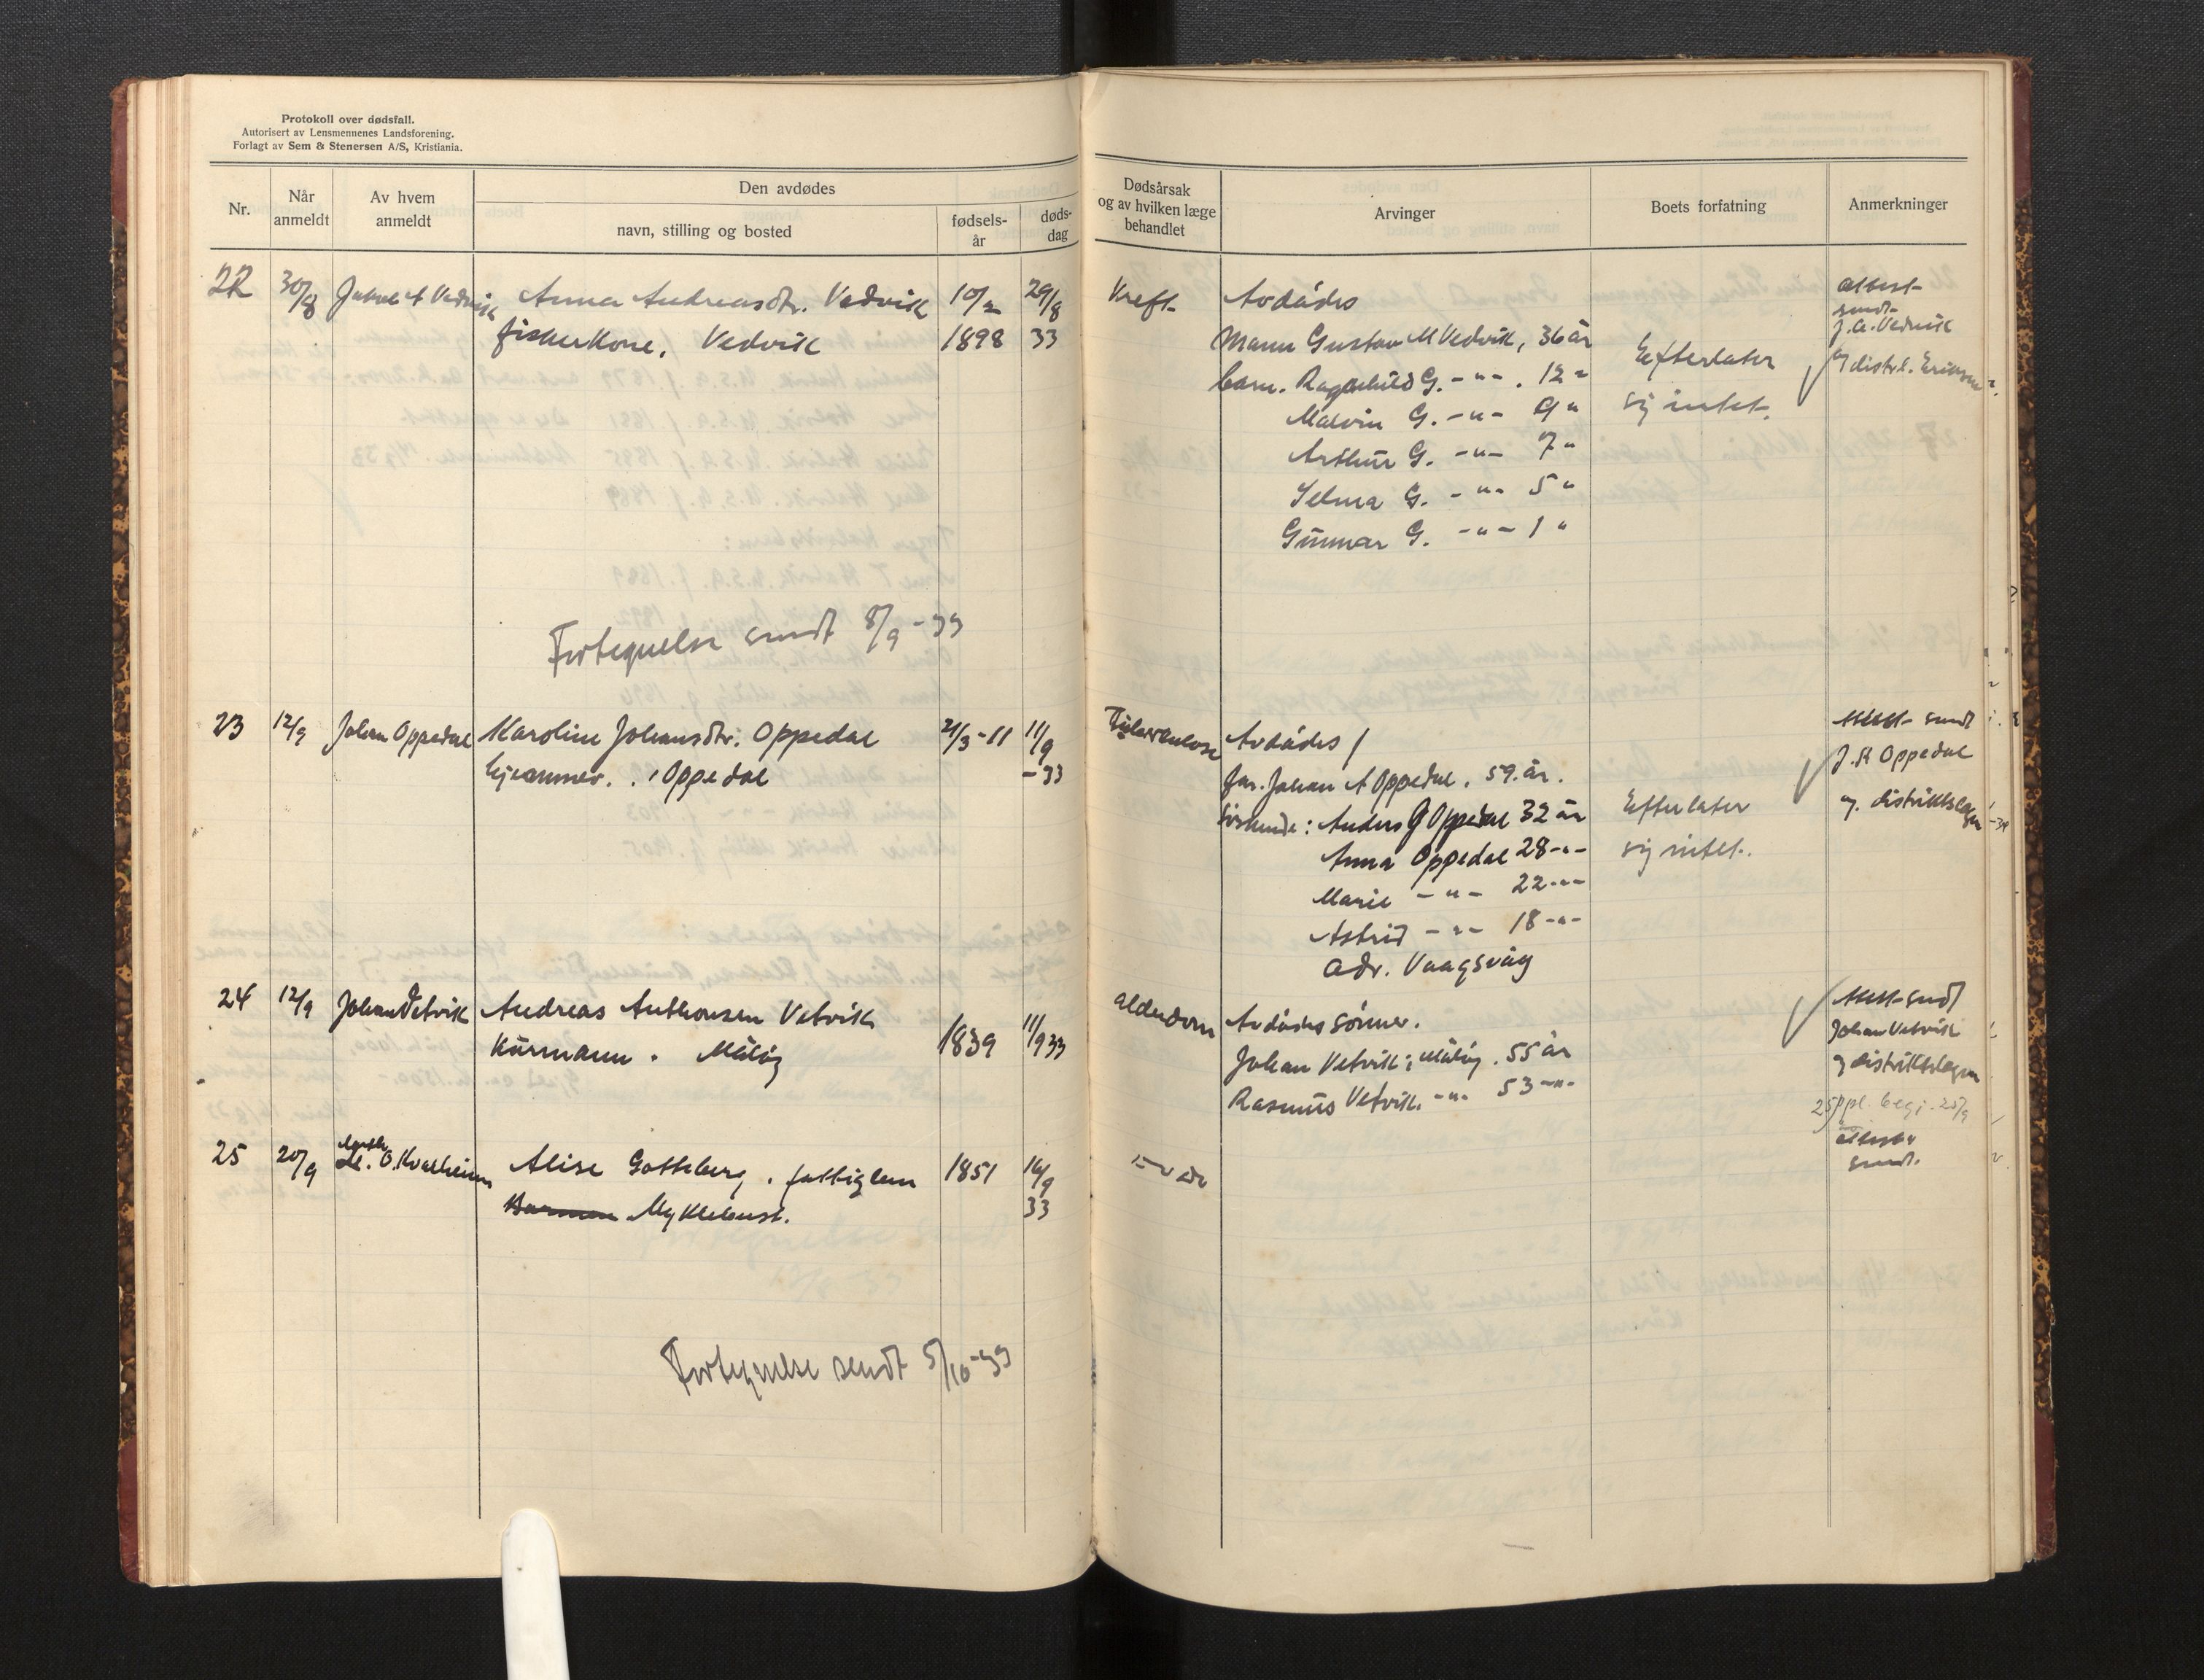 Protokoll over dødsfall.
Autorisert av Lensmennenes Landsforening.
Forlagt av Sem & Stenersen A/S, Kristiania.
Nr.
Når anmeldt
Av hvem anmeldt
Den avdødes
navn, stilling og bosted
fødsels-
år
døds-
dag
Dødsårsak
og av hvilken læge
behandlet
Arvinger
Boets forfatning
Anmerkninger
22 30/8 Vedvik Anna Andreasdtr. Vedvik 10/2 29/8
fiskerkone. Vedvik 1898 33
Kreft Avdødes
Mann Gustav M Vedvik, 36 år
barn. Ragnhild G. -"- . 12 "
Malvin G. -"- 9 "
Arthur G. -"- 7 "
Selma G. -"- 5 "
Gunnar G. -"- 1 "
Efterlater
sig intet.
attest
sendt
J.A. Vedvik
og distrl.
Fortegnelse sendt 8/9 -33
23 12/9 Johan Oppedal Karoline Johansdtr. Oppedal 21/3-11 11/9
hjemmev. , Oppedal -33
Tuberkulose Avdødes /
far. Johan A Oppedal . 59 år.
søskende: Anders G Oppedal 32 år
Anna Oppedal 28 -"-
Marie -"- 22 -"-
Astrid -"- 18 -"-
adr. Vaagsvåg
Efterlater
sig intet.
Attest sendt
J. A Oppedal
og distriktslegen
24 12/9 Johan Vetvik Andreas Anthonsen Vetvik
Kårmann . Måløy 1839 11/9 33
alderdom Avdødes sønner.
Johan Vetvik, Måløy . 55 år
Rasmus Vetvik. -"- 53 -"-
Attest sendt
Johan Vetvik
og distriktslegen
25 20/9 O. Kvalheim Alise Gotteberg . fattiglem 1851 16/9
Myklebust. 33
attest
sendt.
Fortegnelse sendt 5/10 -33